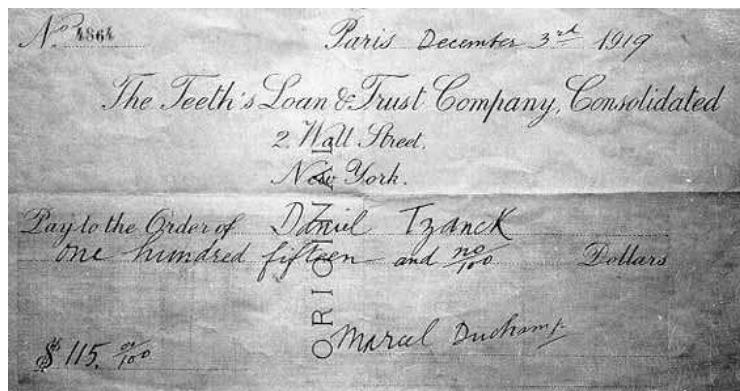 No. 4864 Paris December 3rd 1919
The Teeth's Loan & Trust Company, Consolidated
2 Wall Street.
New York.
Pay to the Order of Daniel Tzanck
one hundred fifteen and no/100 Dollars
$115. no/100 Marcel Duchamp
ORIGINAL